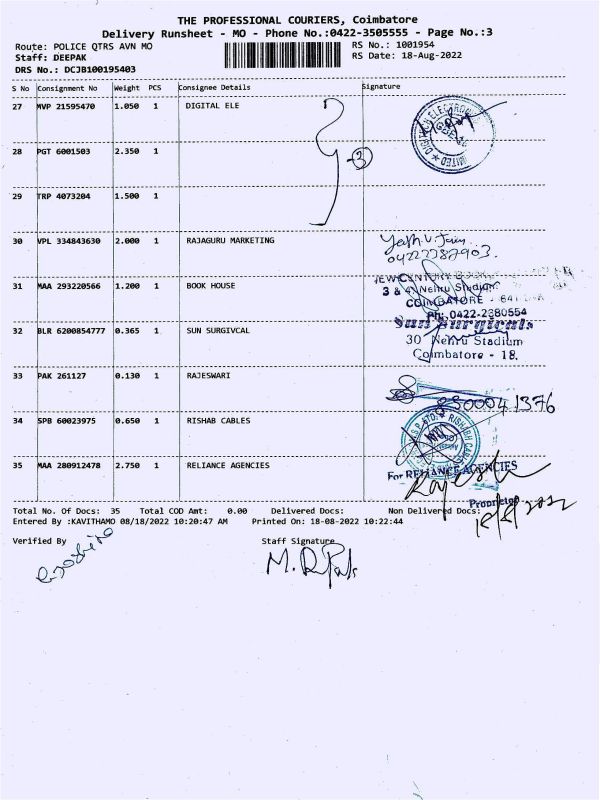 THE PROFESSIONAL COURIERS, Coimbatore
Delivery Runsheet - MO - Phone No.:0422-3505555 - Page No.:3
Route: POLICE QTRS AVN MO RS No.: 1001954
Staff: DEEPAK RS Date: 18-Aug-2022
DRS No.: DCJB100195403
S No Consignment No Weight PCS Consignee Details Signature
27 MVP 21595470 1.050 1 DIGITAL ELE
28 PGT 6001503 2.350 1
3
29 TRP 4073204 1.500 1
30 VPL 334843630 2.000 1 RAJAGURU MARKETING
Yash.V.Jain
04222387903.
31 MAA 293220566 1.200 1 BOOK HOUSE
NEW CENTURY BOOK
3 & 4, Nehru Stadium
COIMBATORE - 641
Ph: 0422-2380554
32 BLR 6200854777 0.365 1 SUN SURGIVCAL
Sun Surgicals
30 Nehru Stadium
Coimbatore - 18.
33 PAK 261127 0.130 1 RAJESWARI
34 SPB 60023975 0.650 1 RISHAB CABLES
35 MAA 280912478 2.750 1 RELIANCE AGENCIES
For RELIANCE AGENCIES
Proprietor
18/8/2022
Total No. Of Docs: 35 Total COD Amt: 0.00 Delivered Docs: Non Delivered Docs:
Entered By :KAVITHAMO 08/18/2022 10:20:47 AM Printed On: 18-08-2022 10:22:44
Verified By Staff Signature